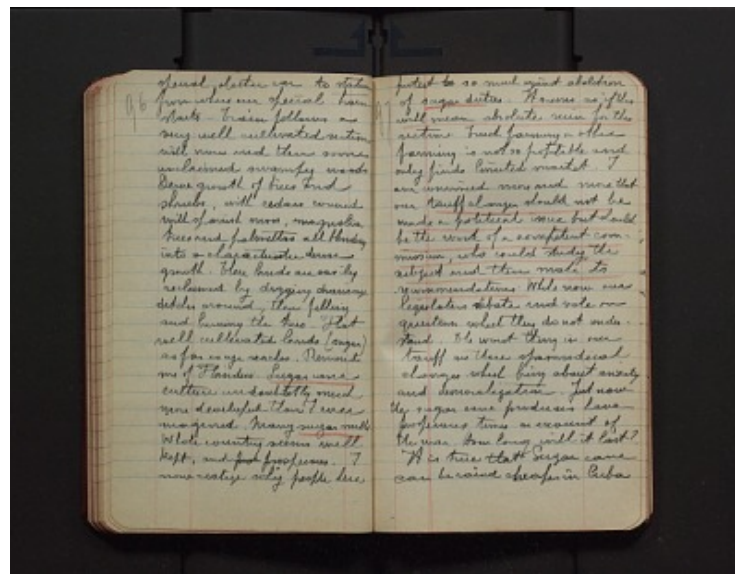 96
special electric car to station
from where our special train
starts. Train follows a
very well cultivated section
with now and then some
unclaimed swampy woods
Dense growth of trees and
shrubs, with cedars covered
with spanish moss, magnolia
trees and palmettos all blending
into a characteristic dense
growth. These lands are easily
reclaimed by digging drainage
ditches around, then felling
and burning the trees. Flat
well cultivated lands (sugar)
as far as eye reaches. Reminds
me of Flanders. Sugar cane
culture undoubtedly much
more developed than I ever
imagined. Many sugar mills
Whole country seems well
kept, and prosperous. I
now realize why people here
97
protest so much against abolition
of sugar duties. It seems as if this
will mean absolute ruin for this
section. Truck farming or other
farming is not so profitable and
only finds limited market. I
am convinced more and more that
our tariff changes should not be
made a political issue but should
be the work of a competent com-
mission, who could study the
subject and then make its
recommendations. While now our
legislators debate and vote on
questions which they do not under-
stand. The worst thing in our
tariff are these spasmodical
changes which bring about anxiety
and demoralization. Just now
the sugar cane producers have
prosperous times on account of
the war. How long will it last?
It is true that Sugar cane
can be raised cheaper in Cuba